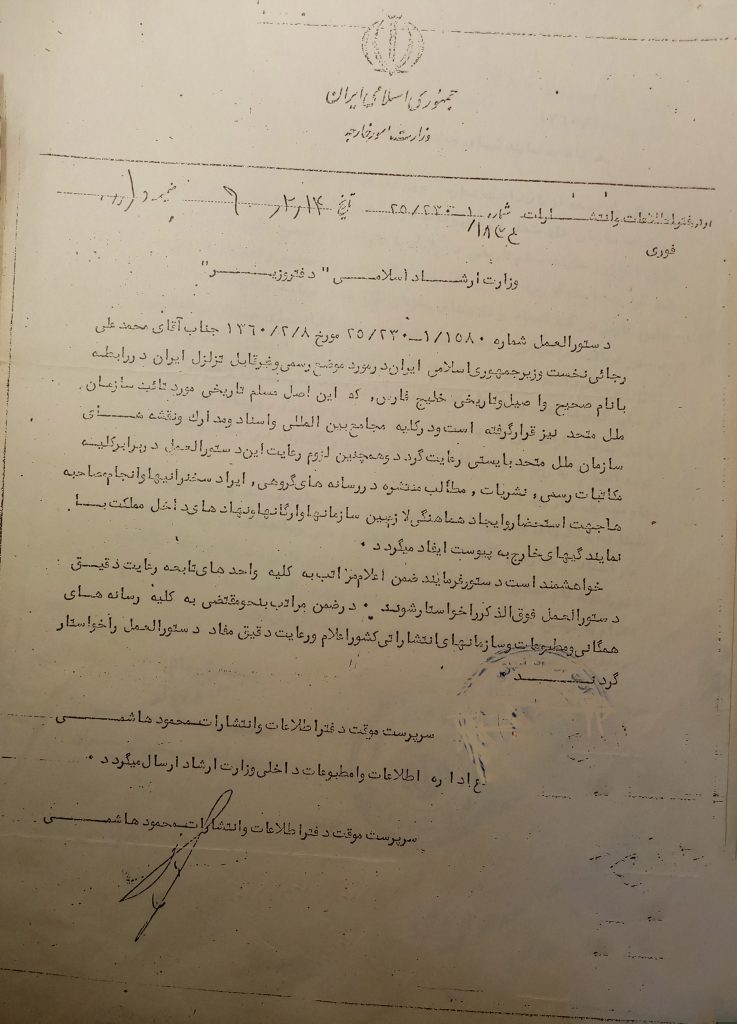 جمهوری اسلامی ایران
وزارت امور خارجه
اداره دفتر اطلاعات وانتشارات شماره ۱ــ۲۵/۲۳۰ تاریخ
فوری
وزارت ارشاد اسلامی "دفتر وزیر"
دستورالعمل شماره ۱/۱۵۸۰ــ۲۵/۲۳۰ مورخ ۱۳۶۰/۲/۸ جناب آقای محمد علی
رجائی نخست وزیر جمهوری اسلامی ایران در مورد موضع رسمی و غیرقابل تزلزل ایران در رابطه
با نام صحیح و اصیل و تاریخی خلیج فارس, که این اصل مسلم تاریخی مورد تائید سازمان
ملل متحد نیز قرار گرفته است ودر کلیه مجامع بین المللی واسناد ومدارك ونقشه های
سازمان ملل متحد بایستی رعایت گردد وهمچنین لزوم رعایت این دستورالعمل در برابر کلیه
مکاتبات رسمی, نشریات, مطالب منتشره در رسانه های گروهی, ایراد سخنرانیها وانجام مصاحبه
ها جهت استحضار وایجاد هماهنگی لازم بین سازمانها وارگانها ونهادهای داخل مملکت با
نمایندگیهای خارج به پیوست ایفاد میگردد.
خواهشمند است دستور فرمایند ضمن اعلام مراتب به کلیه واحدهای تابعه رعایت دقیق
دستورالعمل فوق الذکر را خواستار شوند. در ضمن مراتب بنحو مقتضی به کلیه رسانه های
همگانی ومطبوعات وسازمانهای انتشاراتی کشور اعلام ورعایت دقیق مفاد دستورالعمل را خواستار
گردند.
سرپرست موقت دفتر اطلاعات وانتشارات ـ محمود هاشمی
اداره اطلاعات وامطبوعات داخلی وزارت ارشاد ارسال میگردد.
سرپرست موقت دفتر اطلاعات وانتشارات ـ محمود هاشمی